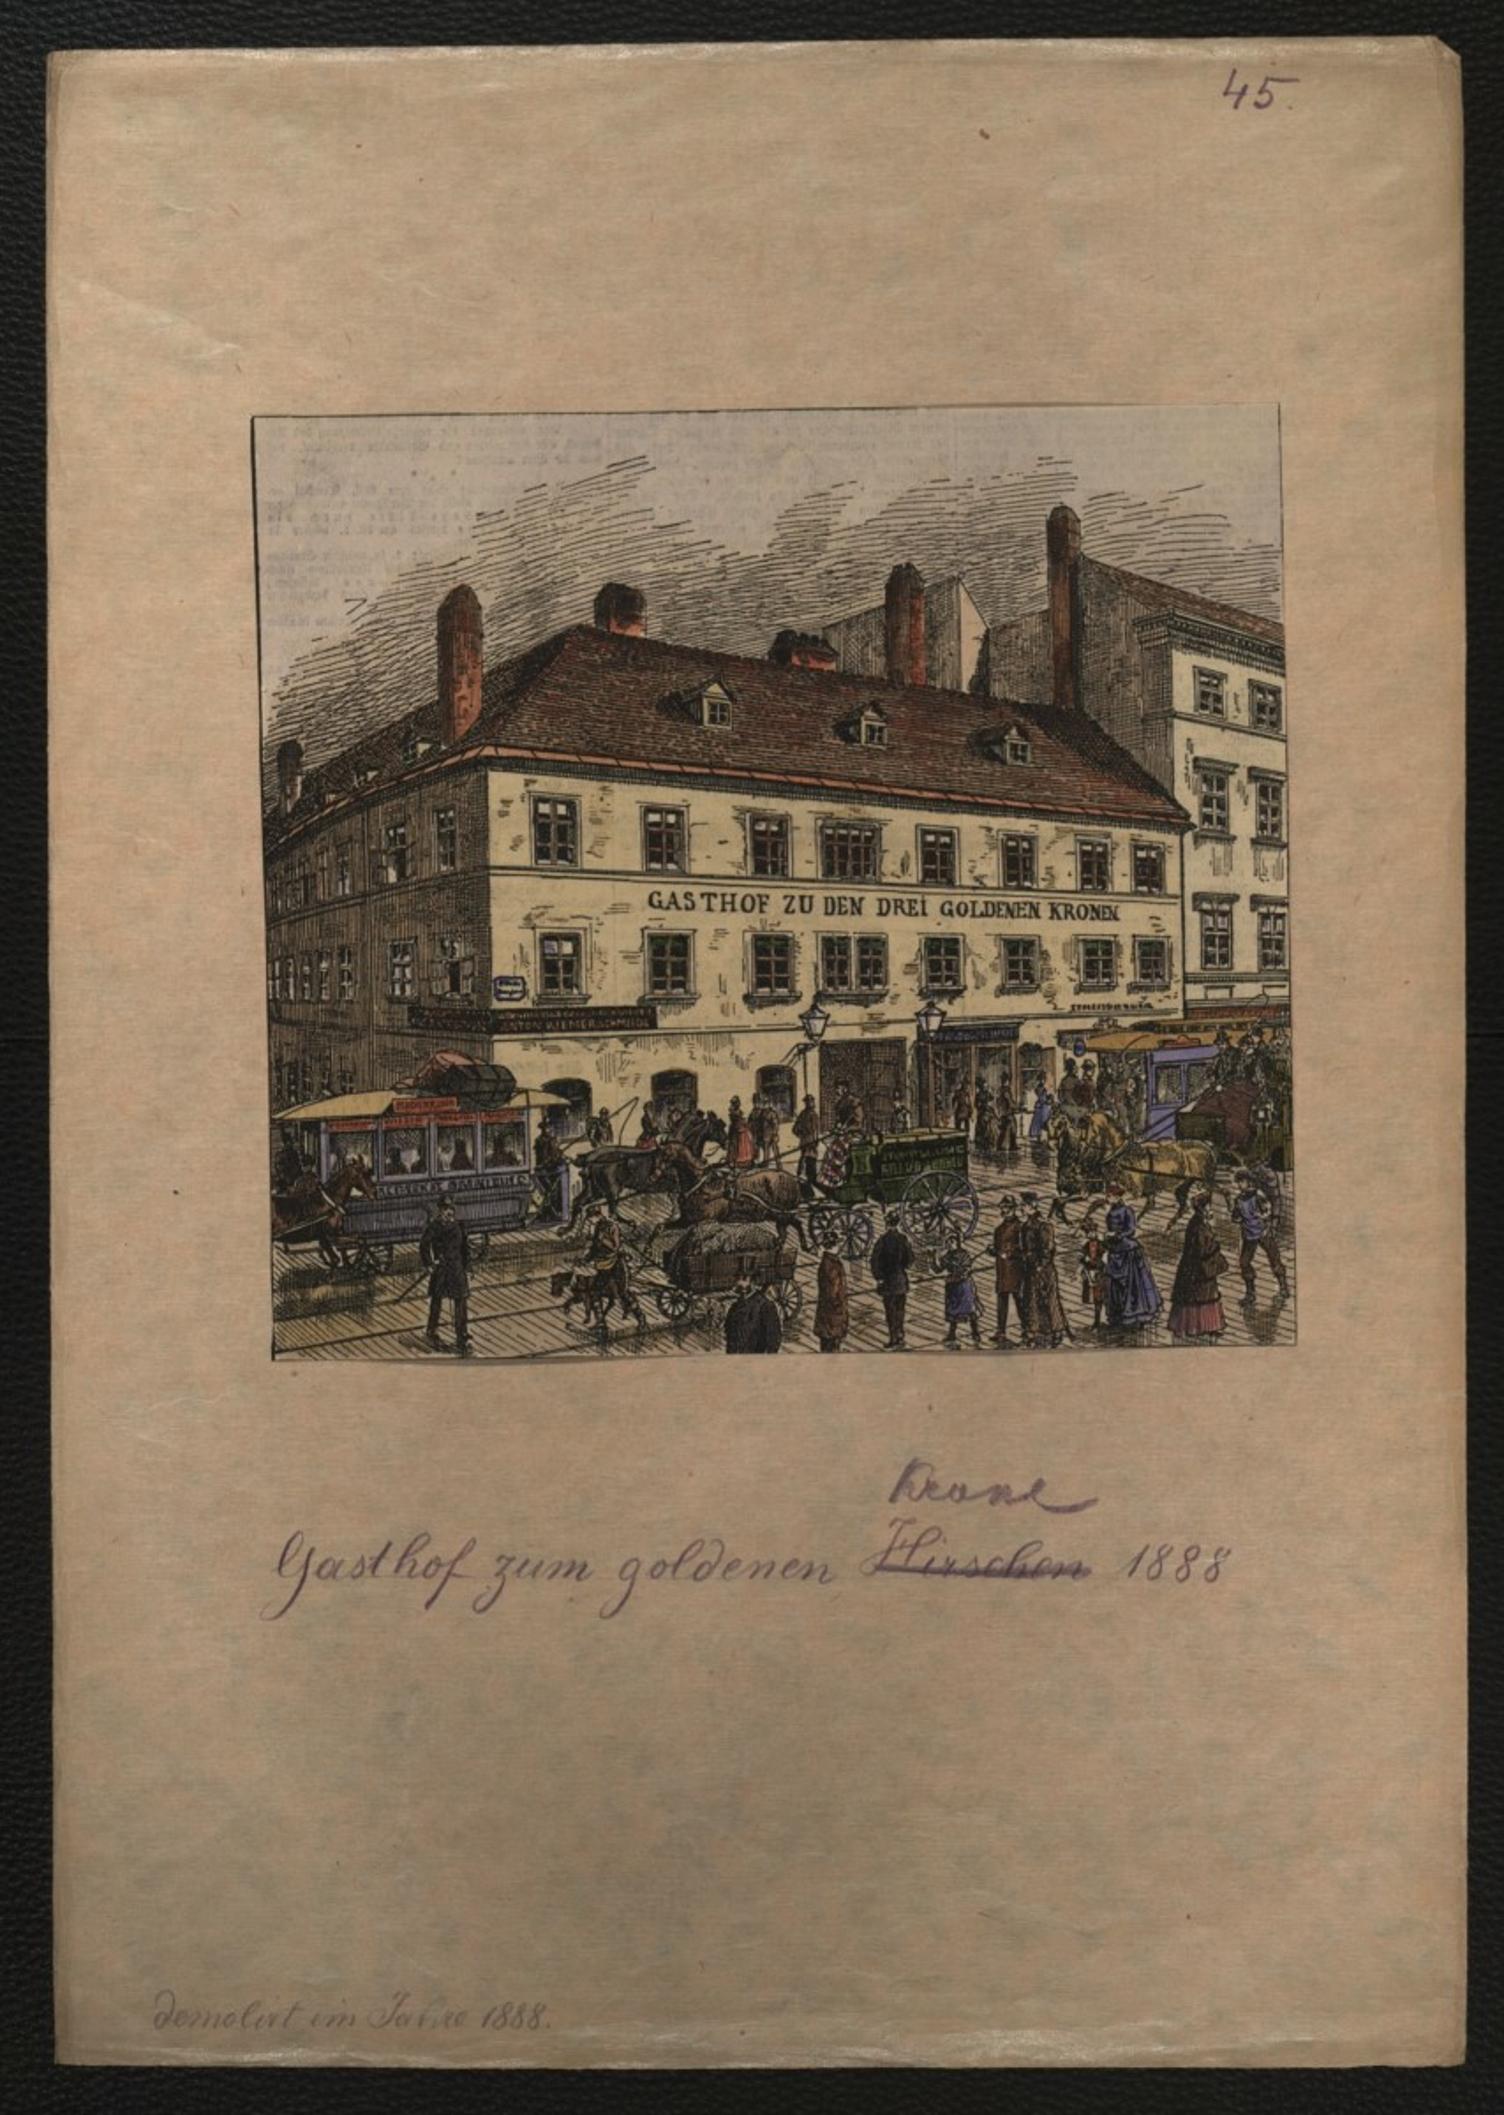 45.
GASTHOF ZU DEN DREI GOLDENEN KRONEN
ANTON RIEMERSCHMIDT
Krone
Gasthof zum goldenen Hirschen 1888
demolirt im Jahre 1888.